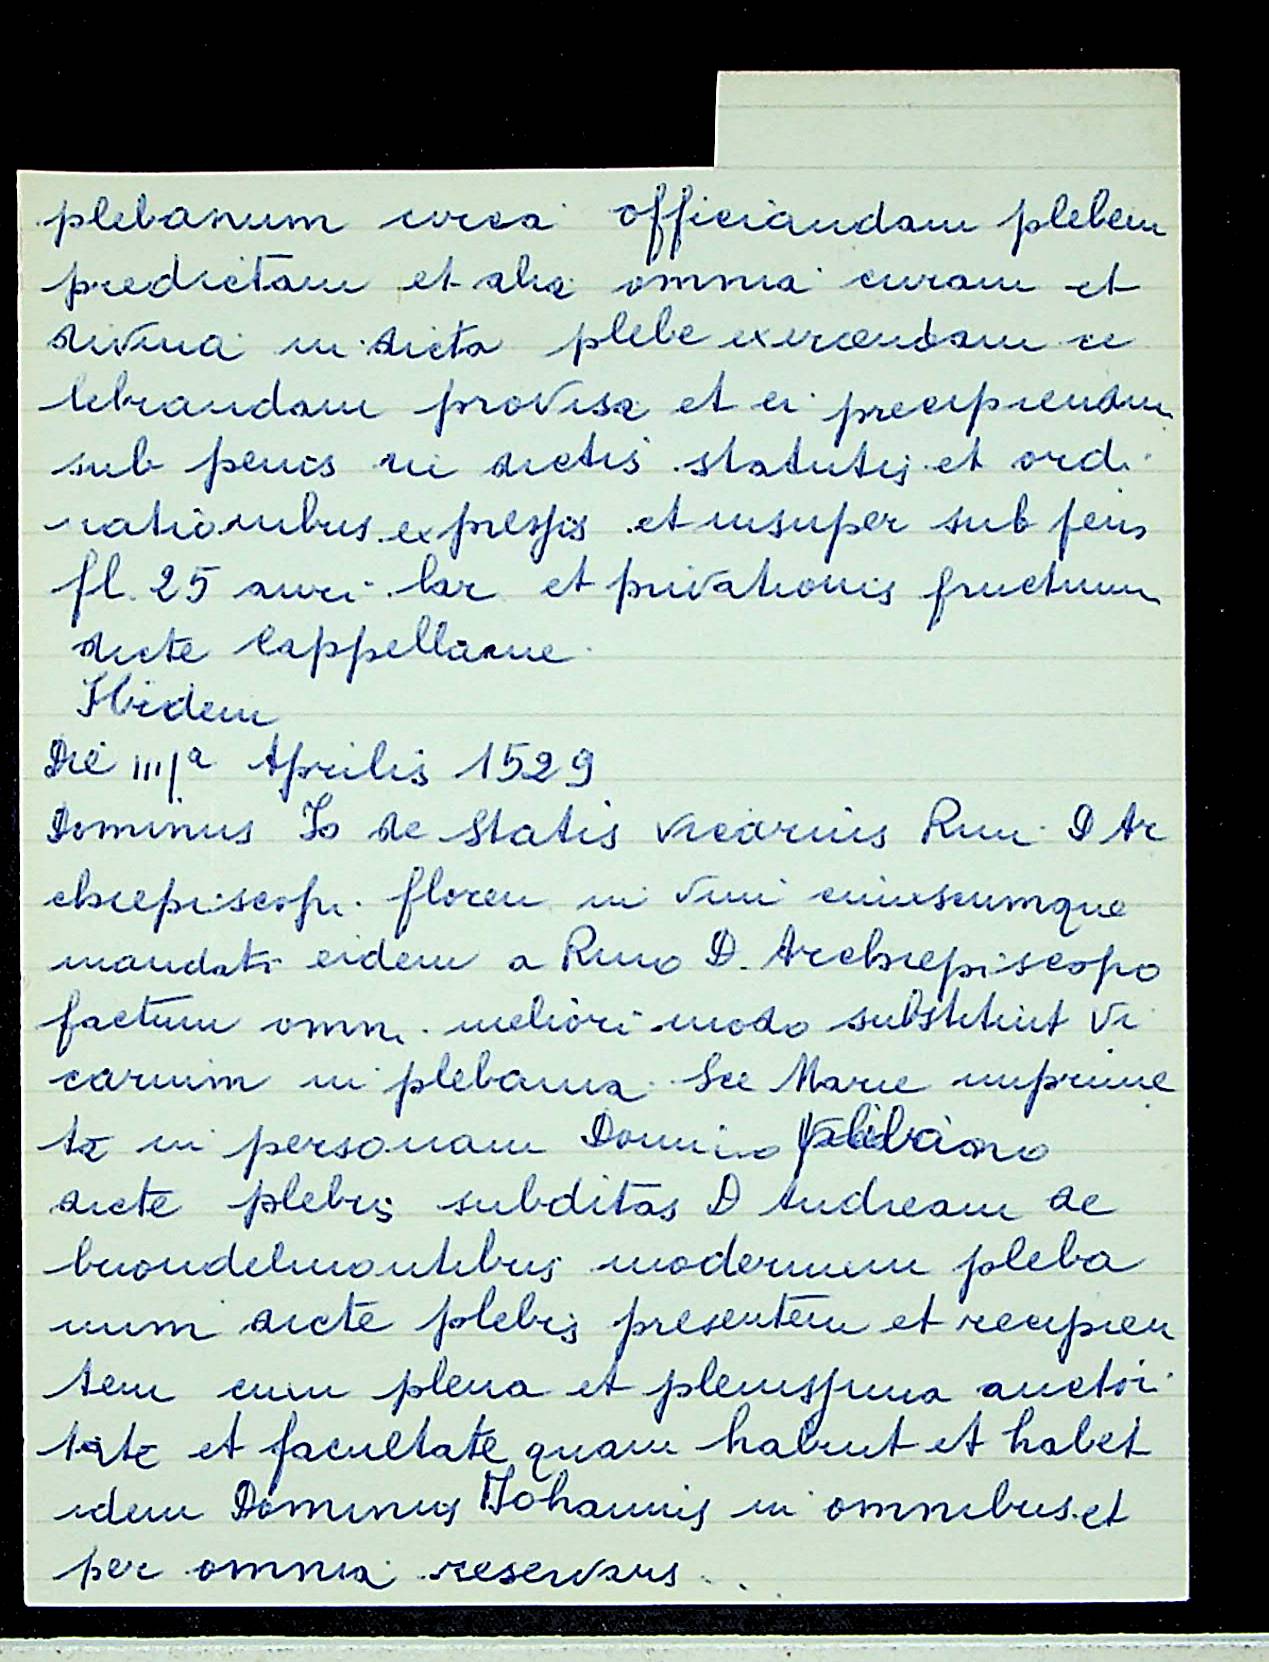 plebanum circa officiandam plebem
predictam et alia omnia curam et
divina in dicta plebe exercendam ce
lebrandam provisa et ei precipiendum
sub penis in dictis statutis et ordi
nationibus expressis et insuper sub pena
fl. 25 auri lar et privationis fructuum
dicte Cappellanie
Ibidem
Die IIIIa Aprilis 1529
Dominus Io de Statis vicarius Rmi D Ar
chiepiscopi floren in vim cuiuscumque
mandati eidem a Rmo D. Archiepiscopo
factum omni meliori modo substituit vi
carium in plebania Sce Marie imprune
te in personam Domino
dicte plebis subditas D Andream de
buondelmontibus modernum pleba
num dicte plebis presentem et recipien
tem cum plena et plenissima auctori
tate et facultate quam habuit et habet
idem Dominus Johannis in omnibus et
per omnia reservans...